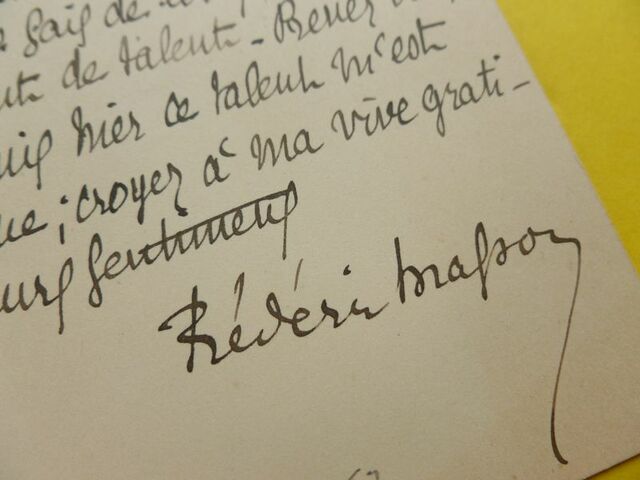 sais de
de talent. Venez
hier ce talent m'est
; croyez à ma vive grati-
sentimens
Frédéric Masson